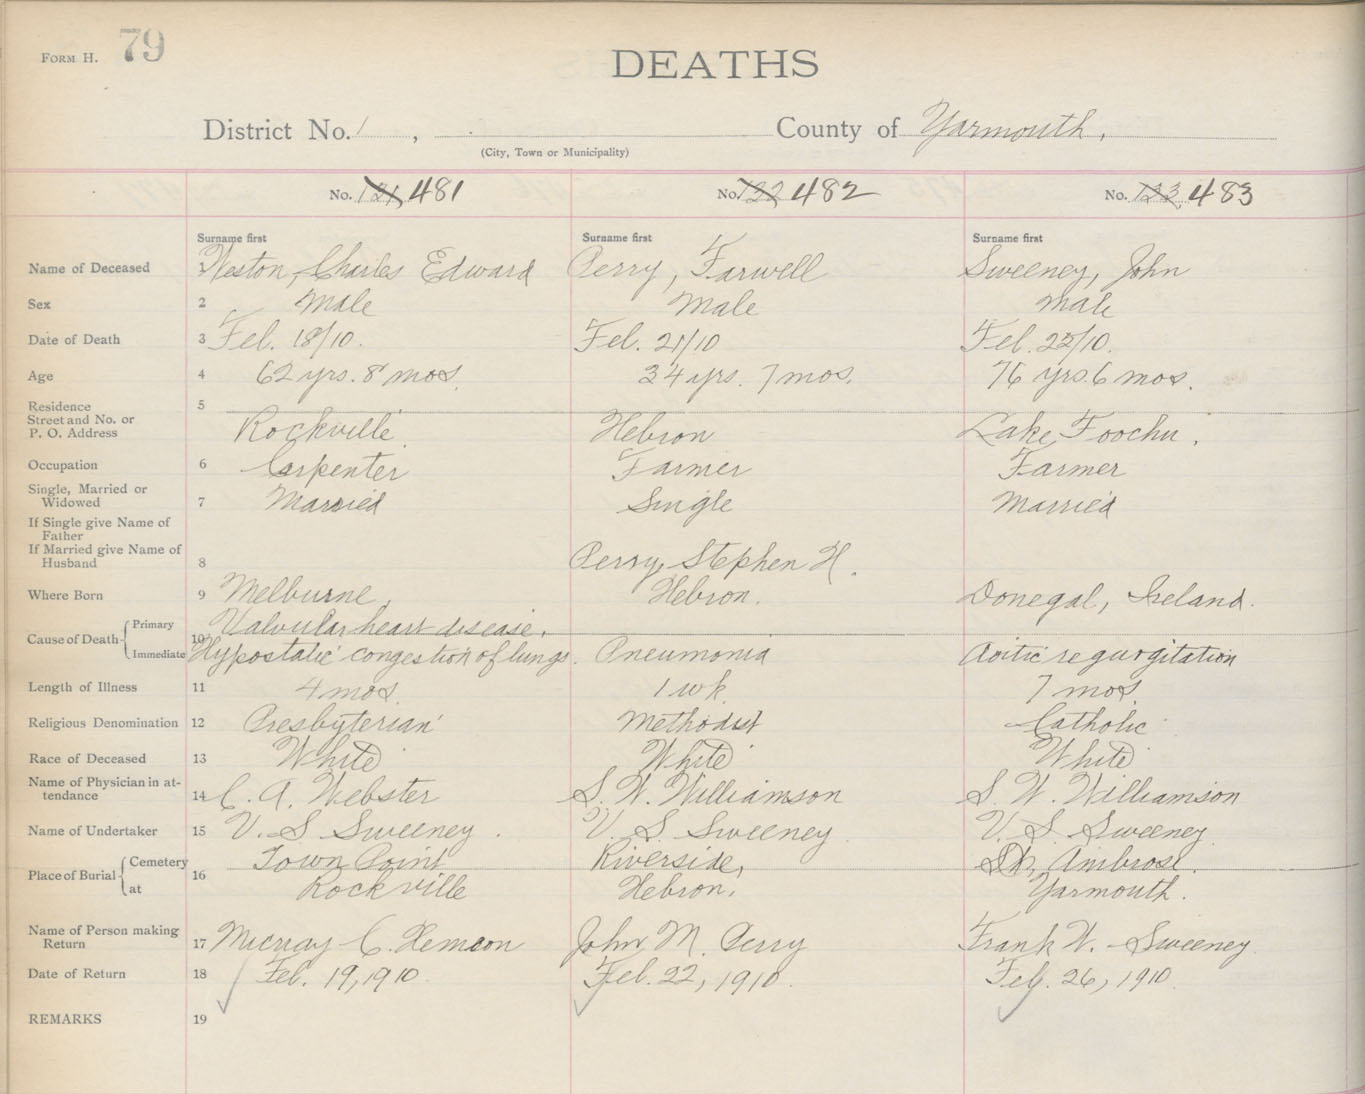 FORM H. 79
DEATHS
District No. 1 , County of Yarmouth,
(City, Town or Municipality)
No. 121, 481 No. 122, 482 No. 123, 483
Surname first Surname first Surname first
Name of Deceased 1 Weston, Charles Edward Perry, Farwell Sweeney, John
Sex 2 Male Male Male
Date of Death 3 Feb. 18/10. Feb. 21/10 Feb. 25/10.
Age 4 62 yrs. 8 mos. 34 yrs. 7 mos. 76 yrs. 6 mos.
Residence 5
Street and No. or
P. O. Address Rockville. Hebron Lake Foochu.
Occupation 6 Carpenter Farmer Farmer
Single, Married or
Widowed 7 Married Single Married
If Single give Name of
Father
If Married give Name of
Husband 8 Perry, Stephen H.
Where Born 9 Melburne, Hebron. Donegal, Ireland.
Cause of Death Primary 10 Valvular heart disease.
Immediate Hypostatic congestion of lungs. Pneumonia Aoitic regurgitation
Length of Illness 11 4 mos. 1 wk. 7 mos.
Religious Denomination 12 Presbyterian Methodist Catholic
Race of Deceased 13 White White White
Name of Physician in at-
tendance 14 C. A. Webster S. W. Williamson S. W. Williamson
Name of Undertaker 15 V. S. Sweeney. V. S. Sweeney V. S. Sweeney
Place of Burial Cemetery 16 Town Point Riverside, Ambrose.
at Rockville Hebron. Yarmouth.
Name of Person making
Return 17 Murray C. John M. Perry Frank W. Sweeney
Date of Return 18 Feb. 19, 1910. Feb. 22, 1910. Feb. 26, 1910
REMARKS 19